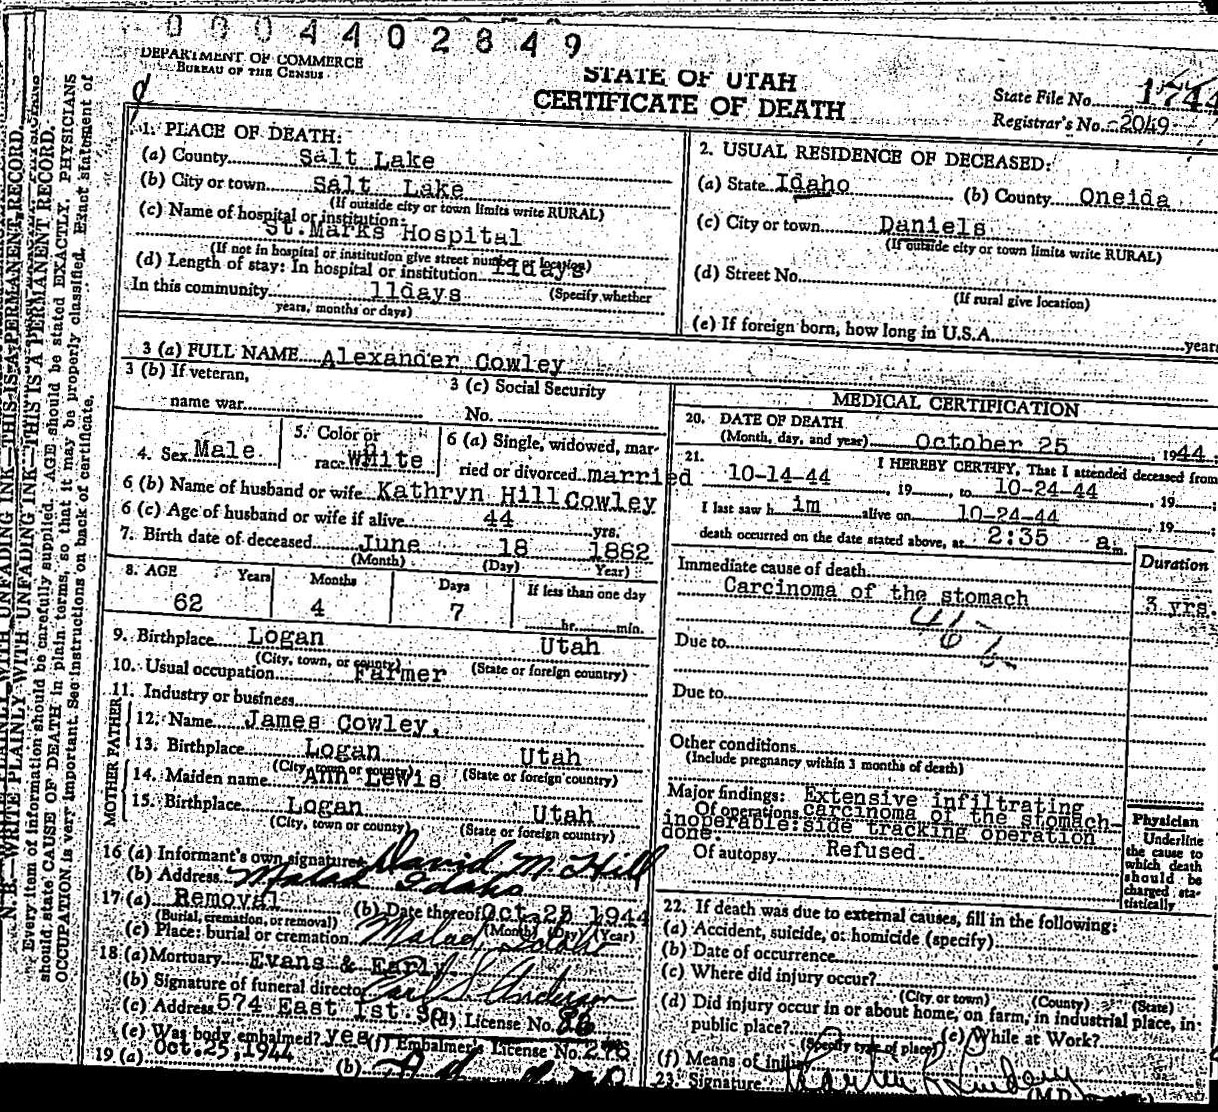 0 0 0 4 4 0 2 8 4 9
DEPARTMENT OF COMMERCE
BUREAU OF THE CENSUS
STATE OF UTAH
CERTIFICATE OF DEATH
State File No. 1744
Registrar's No. 2049
1. PLACE OF DEATH:
(a) County Salt Lake
(b) City or town Salt Lake
(If outside city or town limits write RURAL)
(c) Name of hospital or institution:
St.Marks Hospital
(If not in hospital or institution give street number or location)
(d) Length of stay: In hospital or institution 11days
In this community 11days (Specify whether
years, months or days)
2. USUAL RESIDENCE OF DECEASED:
(a) State Idaho (b) County Oneida
(c) City or town Daniels
(If outside city or town limits write RURAL)
(d) Street No.
(If rural give location)
(e) If foreign born, how long in U.S.A. years
3 (a) FULL NAME Alexander Cowley
3 (b) If veteran,
name war
3 (c) Social Security
No.
4. Sex Male
5. Color or
race White
6 (a) Single, widowed, mar-
ried or divorced married
6 (b) Name of husband or wife Kathryn Hill Cowley
6 (c) Age of husband or wife if alive 44 yrs.
7. Birth date of deceased June 18 1882
(Month) (Day) Year)
8. AGE Years Months Days If less than one day
62 4 7 hr. min.
9. Birthplace Logan Utah
(City, town, or county) (State or foreign country)
10. Usual occupation Farmer
11. Industry or business
FATHER
12. Name James Cowley.
13. Birthplace Logan Utah
(City, town or county) (State or foreign country)
MOTHER
14. Maiden name Ann Lewis
15. Birthplace Logan Utah
(City, town or county) (State or foreign country)
16 (a) Informant's own signature David M. Hill
(b) Address Malad Idaho
17 (a) Removal (b) Date thereof Oct. 25 1944
(Burial, cremation, or removal) (Month) (Day) (Year)
(c) Place: burial or cremation Malad Idaho
18 (a) Mortuary Evans & Early
(b) Signature of funeral director Carl S. Anderson
(c) Address 574 East 1st. So. (d) License No. 86
(e) Was body embalmed? yes (f) Embalmer's License No. 276
19 (a) Oct.25,1944 (b)
MEDICAL CERTIFICATION
20. DATE OF DEATH
(Month, day, and year) October 25 , 1944
21. I HEREBY CERTIFY, That I attended deceased from
10-14-44 , 19 , to 10-24-44 , 19 ;
I last saw h im alive on 10-24-44 , 19 ;
death occurred on the date stated above, at 2:35 a m.
Immediate cause of death Duration
Carcinoma of the stomach 3 yrs.
46 b
Due to
Due to
Other conditions
(Include pregnancy within 3 months of death)
Major findings: Extensive infiltrating
Of operations carcinoma of the stomach-
inoperable:side tracking operation
done.
Of autopsy Refused.
Physician
Underline
the cause to
which death
should be
charged sta-
tistically
22. If death was due to external causes, fill in the following:
(a) Accident, suicide, or homicide (specify)
(b) Date of occurrence
(c) Where did injury occur?
(City or town) (County) (State)
(d) Did injury occur in or about home, on farm, in industrial place, in
public place? (e) While at Work?
(Specify type of place)
(f) Means of
23. Signature
(M.D.
N. B.—WRITE PLAINLY WITH UNFADING INK—THIS IS A PERMANENT RECORD.
Every item of information should be carefully supplied. AGE should be stated EXACTLY. PHYSICIANS
should state CAUSE OF DEATH in plain terms, so that it may be properly classified. Exact statement of
OCCUPATION is very important. See instructions on back of certificate.